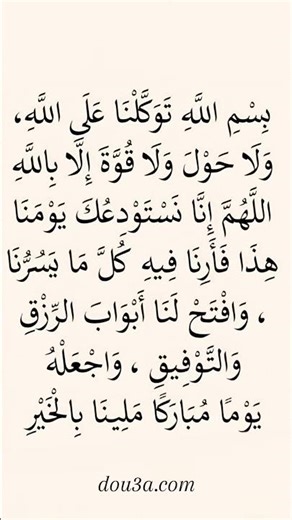 بِسْمِ اللَّهِ تَوَكَّلْنَا عَلَى اللَّهِ،
وَلَا حَوْلَ وَلَا قُوَّةَ إِلَّا بِاللَّهِ
اللَّهُمَّ إِنَّا نَسْتَوْدِعُكَ يَوْمَنَا
هِذَا فَأَرِنَا فِيهِ كُلَّ مَا يَسُرُّنَا
، وَافْتَحْ لَنَا أَبْوَابَ الرِّزْقِ
وَالتَّوْفِيقِ ، وَاجْعَلْهُ
يَوْمًا مُبَارَكًا مَلِينَا بِالْخَيْرِ
dou3a.com